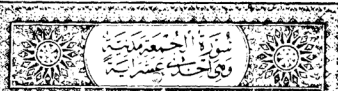 سُورَةُ الْجُمُعَةِ مَدَنِيَّةٌ
وَهِيَ اِحْدٰى عَشَرَ اٰيَةً